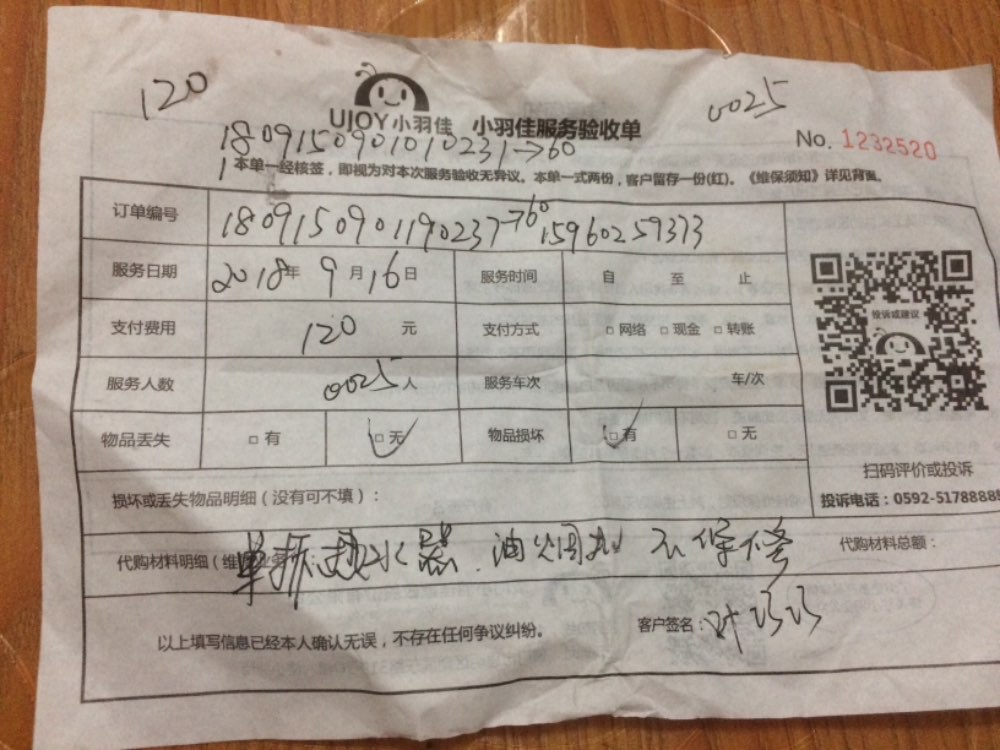 120
0025
UJOY小羽佳 小羽佳服务验收单
No. 1232520
180915090101010231→60
本单一经核签，即视为对本次服务验收无异议。本单一式两份，客户留存一份(红)。《维保须知》详见背面。
订单编号 1809150901190237→60 15960259373
服务日期 2018年 9月16日 服务时间 自 至 止
支付费用 120 元 支付方式 □网络 □现金 □转账
投诉或建议
服务人数 0025人 服务车次 车/次
物品丢失 □有 □无 物品损坏 □有 □无
扫码评价或投诉
损坏或丢失物品明细（没有可不填）：
投诉电话：0592-5178888
代购材料明细（维 业务 ： 代购材料总额：
单拆热水器.油烟机 不保修
以上填写信息已经本人确认无误，不存在任何争议纠纷。 客户签名：叶巧巧